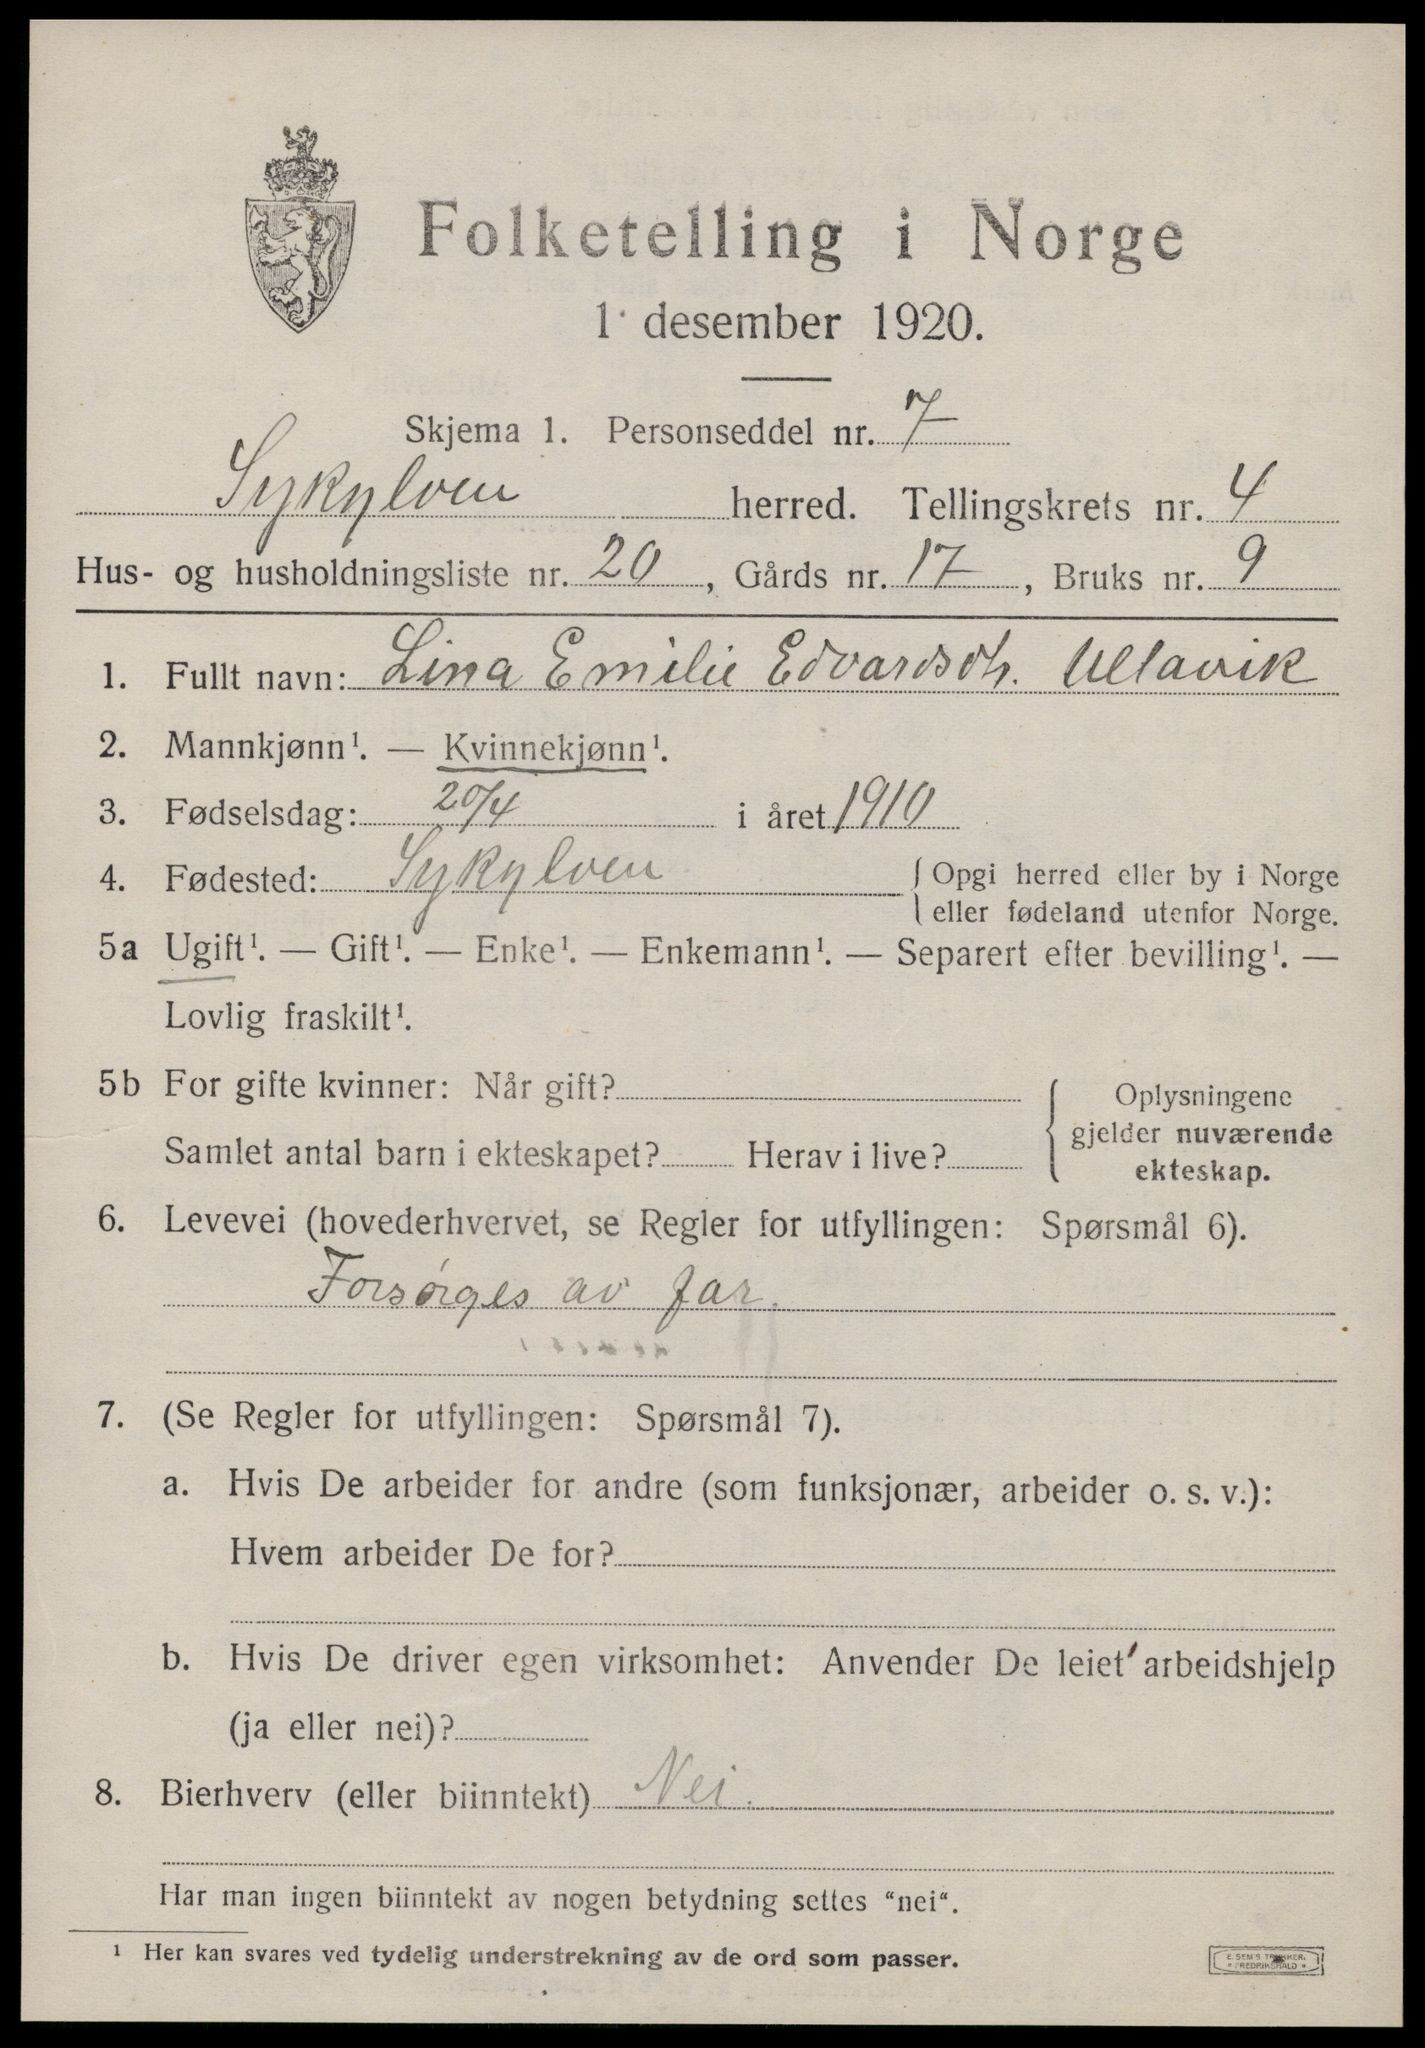 Folketelling i Norge
1. desember 1920.
Skjema 1. Personseddel nr. 7
Sykylven herred. Tellingskrets nr. 4
Hus- og husholdningsliste nr. 20, Gårds nr. 17, Bruks nr. 9
1. Fullt navn: Lina Emilie Edvardsdtr. Ullavik
2. Mannkjønn¹. — Kvinnekjønn¹.
3. Fødselsdag: 20/4 i året 1910
4. Fødested: Sykylven { Opgi herred eller by i Norge
eller fødeland utenfor Norge.
5a Ugift¹. — Gift¹. — Enke¹. — Enkemann¹. — Separert efter bevilling¹. —
Lovlig fraskilt¹.
5b For gifte kvinner: Når gift?
Samlet antal barn i ekteskapet? Herav i live?
Oplysningene
gjelder nuværende
ekteskap.
6. Levevei (hovederhvervet, se Regler for utfyllingen: Spørsmål 6).
Forsørges av far.
7. (Se Regler for utfyllingen: Spørsmål 7).
a. Hvis De arbeider for andre (som funksjonær, arbeider o. s. v.):
Hvem arbeider De for?
b. Hvis De driver egen virksomhet: Anvender De leiet arbeidshjelp
(ja eller nei)?
8. Bierhverv (eller biinntekt) Nei.
Har man ingen biinntekt av nogen betydning settes "nei".
¹ Her kan svares ved tydelig understrekning av de ord som passer.
E. SEM'S TRYKKERI,
FREDRIKSHALD